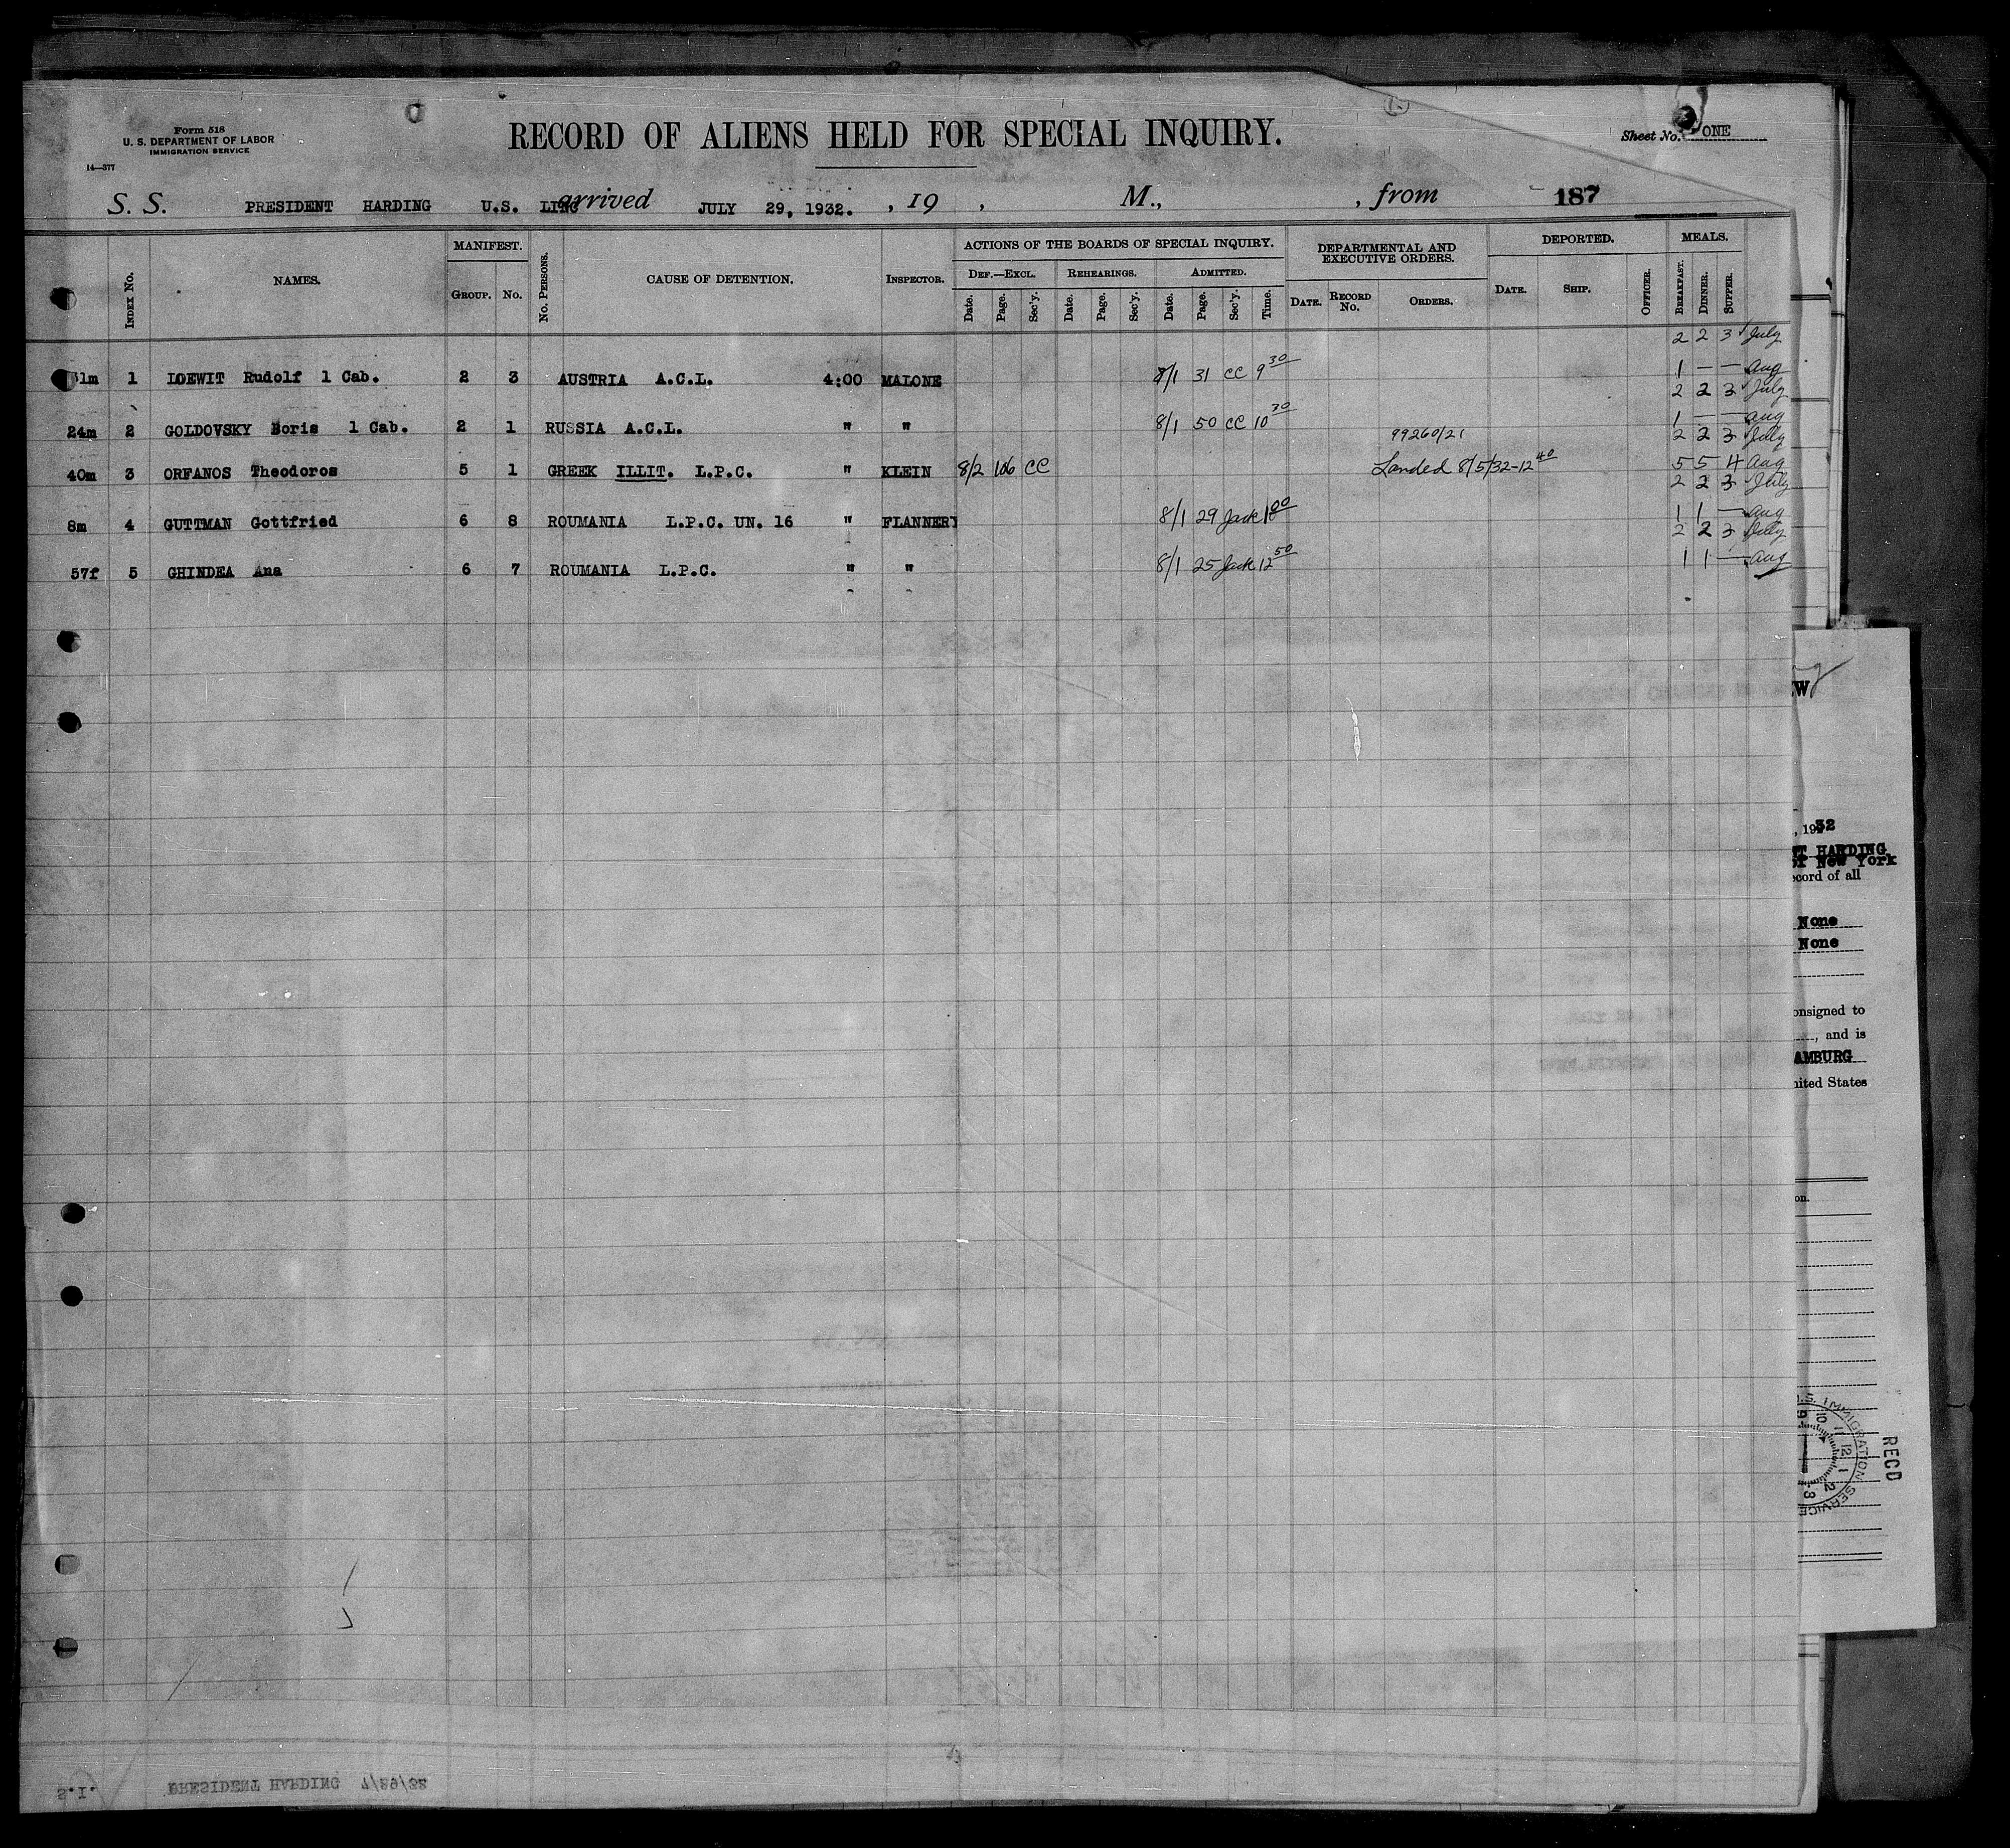 Form 518
U. S. DEPARTMENT OF LABOR
IMMIGRATION SERVICE
14—377
RECORD OF ALIENS HELD FOR SPECIAL INQUIRY.
Sheet No. ONE
S. S. PRESIDENT HARDING U.S. LINE arrived JULY 29, 1932. , 19 , M., , from 187
Index No. NAMES. MANIFEST. GROUP. NO. No. PERSONS. CAUSE OF DETENTION. INSPECTOR. ACTIONS OF THE BOARDS OF SPECIAL INQUIRY. DEF.—EXCL. Date. Page. Sec'y. REHEARINGS. Date. Page. Sec'y. ADMITTED. Date. Page. Sec'y. Time. DEPARTMENTAL AND EXECUTIVE ORDERS. DATE. RECORD No. ORDERS. DEPORTED. DATE. SHIP. OFFICER. MEALS. BREAKFAST. DINNER. SUPPER.
2 2 3 July
31m 1 LOEWIT Rudolf 1 Cab. 2 3 AUSTRIA A.C.L. 4:00 MALONE 8/1 31 CC 9 30 1 — — Aug
2 2 3 July
24m 2 GOLDOVSKY Boris 1 Cab. 2 1 RUSSIA A.C.L. " " 8/1 50 CC 10 30 1 — — Aug
99260/21 2 2 3 July
40m 3 ORFANOS Theodoros 5 1 GREEK ILLIT. L.P.C. " KLEIN 8/2 106 CC Landed 8/5/32-12 40 5 5 4 Aug
2 2 3 July
8m 4 GUTTMAN Gottfried 6 8 ROUMANIA L.P.C. UN. 16 " FLANNERY 8/1 29 Jack 1 00 1 1 — Aug
2 2 3 July
57f 5 GHINDEA Ana 6 7 ROUMANIA L.P.C. " " 8/1 25 Jack 12 50 1 1 — Aug
, 1932
NT HARDING
of New York
ecord of all
None
None
onsigned to
, and is
AMBURG
nited States
on.
U.S. IMMIGRATION SERVICE
RECD
S.I. PRESIDENT HARDING 7/29/32